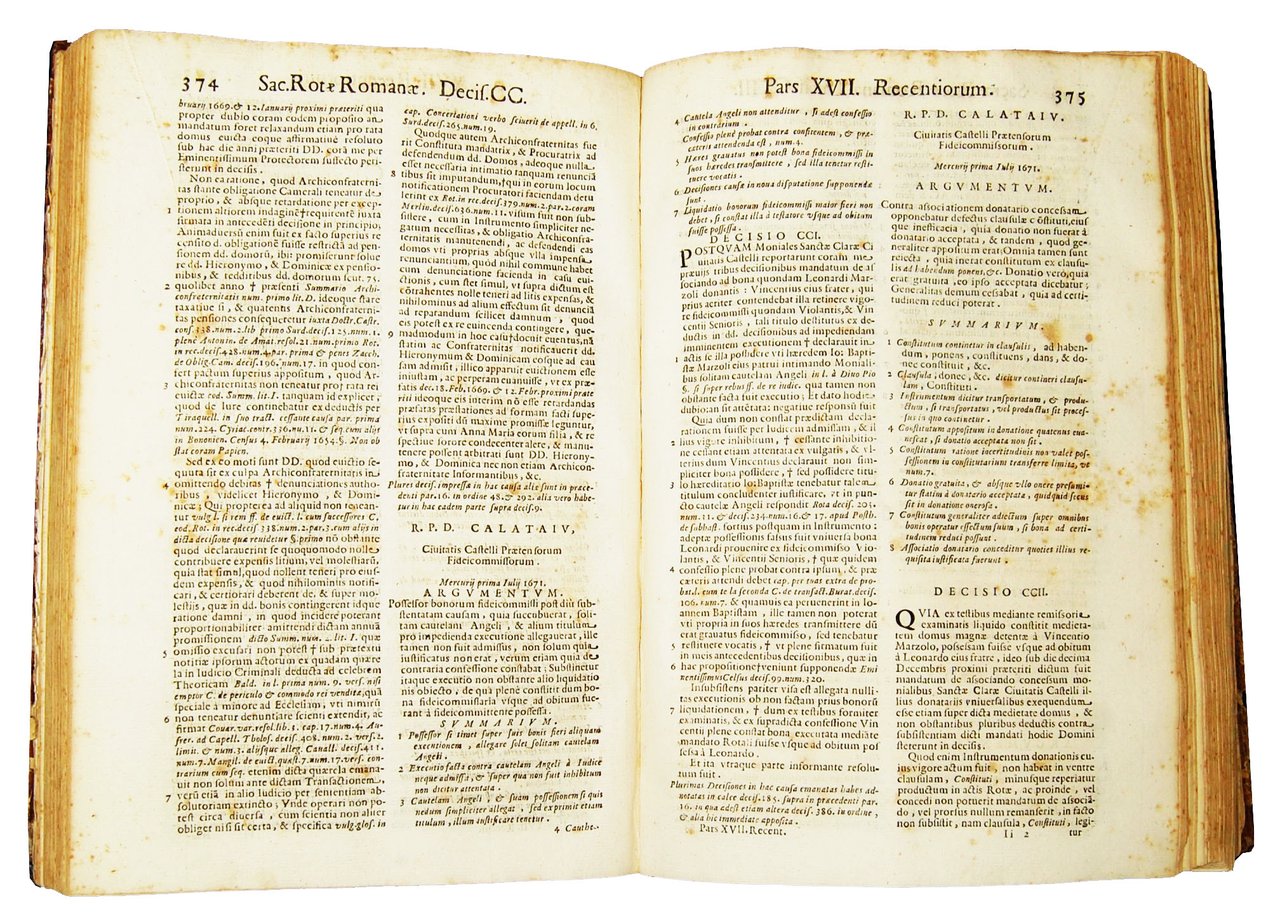 374 Sac.Rotæ Romanæ. Decis.CC.
bruarij 1669.& 12. Ianuarij proximi præteriti qua
propter dubio coram eodem proposito an
mandatum foret relaxandum etiam pro rata
domus euicta coque affirmatiuè resoluto
sub hac die anni præteriti DD. corā me per
Eminentissimum Protectorem suffecto peri-
sterunt in decisis.
Non ea ratione, quod Archiconfraterni-
tas stante obligatione Camerali teneatur de
proprio, & absque retardatione per excep-
1 tionem altiorem indaginē†requirentē iuxta
firmata in antecedēti decisione in principio,
Animaduersū enim fuit ex facto superius re
censito d. obligationē fuisse restrictā ad pen-
sionem dd. domorū, ibi: promiserunt solue
re dd. Hieronymo, & Dominicæ ex pensio-
nibus, & redditibus dd. domorum scut. 75.
2 quolibet anno † præsenti Summario Archi-
confraternitatis num. primo lit. D. ideoque stare
taxatiuè si, & quatenus Archiconfraterni-
tas pensiones consequeretur iuxta Doctr. Castr.
cons.338.num.2.lib primo Surd.decis.125.num.1.
plenè Antonin. de Amat.resol.21.num.primo Rot.
in rec.decis.428.num.4.par. prima & penes Zacch.
de Oblig.Cam. decis.196.num.17. in quod con-
fert pactum superius appositum, quod A-
3 rchiconfraternitas non teneatur prorata rei
euictæ cod. Summ. lit.I. tanquam id explicet,
quod de Iure continebatur ex deductis per
Tiraquell. in suo tract. cessante causa par. prima
num.224. Cyriac.contr.336.nu.11. & seq. cum aliis
in Bononien. Census 4. Februarij 1654.§. Non ob
stat coram Papien.
Sed ex eo moti sunt DD. quod euictio se-
quuta sit ex culpa Archiconfraternitatis in
4 omittendo debitas † denunciationes autho-
ribus, videlicet Hieronymo, & Domi-
nicæ; Qui propterea ad aliquid non tenean-
tur vulg l. si rem ff. de euict. l. cum successores C,
eod. Rot. in rec.decis.338.num.2.par.3.cum aliis in
dicta decisione quæ reuidetur §.primo nō obstante
quod declarauerint se quoquomodo nolle
contribuere expensis litium, vel molestiarū,
quia stat simul,quod nollent teneri pro eius-
dem expensis, & quod nihilominus notifi-
cari, & certiorari deberent de, & super mo-
lestijs, quæ in dd. bonis contingerent idque
ratione damni, in quod incidere poterant
proportionabiliter amittendi dictam annuā
promissionem dicto Summ. num. 2. lit. I. quæ
5 omissio excusari non potest † sub prætextu
notitiæ ipsorum actorum ex quadam quære
la in Iudicio Criminali deducta ad celebrem
Theoricam Bald. in l. prima num. 9. vers. nisi
emptor C. de periculo & commodo rei vendita,quā
speciale à minore ad Ecclesiam, vti nimirū
6 non teneatur denuntiare scienti extendit, ac
firmat Couar.var.resol.lib.1. cap.17.num.4. Au-
frer. ad Capell. Tholos. decis.408.num.2. vers.2.
limit. & num.3. aliusque alleg. Canall. decis.411.
num.7. Mangil. de euict.quæst.7.num.17.vers. con-
trarium cum seq. etenim dicta quærela emana-
uit non solum ante dictam Transactionem,
7 verū etiā in alio Iudicio per sententiam ab-
solutoriam extincto; Vnde operari non po-
test circa diuersa, cum scientia non aliter
obliget nisi sit certa, & specifica vulg.glos. in
cap. Concertationi verbo sciuerit de appell. in 6.
Surd.decis.265.num.19.
Quodque autem Archiconfraternitas fue
rit Constituta mandatrix, & Procuratrix ad
defendendum dd. Domos, adeoque nulla
esset necessaria intimatio tanquam renunciā
8 tibus sit imputandum,†qui in eorum locum
notificationem Procuratori faciendam detu
lerint ex Rot.in rec.decis.379.num.2.par.2.coram
Merlin.decis.636.num.11. visum fuit non sub-
sistere, cum in Instrumento simpliciter ne-
gatum necessitas, & obligatio Archiconfra-
ternitatis manutenendi, ac defendendi eas
domos vti proprias absque vlla impensa
renunciantium, quod nihil commune habet
cum denunciatione facienda in casu eui-
ctionis, cum stet simul, vt supra dictum est
cōtrahentes nolle teneri ad litis expensas, &
nihilominus ad alium effectum sit denunciā
ad reparandum scilicet damnum, quod
eis potest ex re euincenda contingere, que-
9 madmodum in hoc casu†docuit euentus,nā
statim ac Confraternitas notificauerit dd.
Hieronymum & Dominicam eosque ad cau
sam admisit, illico apparuit euictionem esse
iniustam, ac perperam euanuisse, vt ex præ-
fatis dec. 18. Feb.1669. & 12. Feb.proximi præte
riti ideoque eis interim nō esse retardandas
præfatas præstationes ad formam facti supe-
rius expositi dū maxime promissæ leguntur,
vt supra cum Anna Maria eorum filia, & re
spectiuè sorore condecenter alere, & manu-
tenere possent arbitrati sunt DD. Hierony-
mo, & Dominica nec non etiam Archicon-
fraternitate Informantibus, &c.
Plures decis.impressæ in hac causa aliæ sunt in præce-
denti par.16. in ordine 48.& 292. alia vero habe-
tur in hac eadem parte supra decis.9.
R. P. D. CALATAIV,
Ciuitatis Castelli Prætensorum
Fideicommissorum.
Mercurij prima Iulij 1671.
ARGVMENTVM.
Possessor bonorum fideicommissi post diù sub-
stentatam causam, quia succubuerat, soli-
tam cautelam Angeli, & alium titulum
pro impedienda executione allegauerat, ille
tamen non fuit admissus, non solum quia
iustificatus non erat, verum etiam quia de
contraria confessione constabat: Substinetur
itaque executio non obstante alio liquidatio
nis obiecto, de qua plenè constitit dum bo-
na fideicommissaria vsque ad obitum fue-
rant à fideicommittente possessa.
SVMMARIVM.
1 Possessor si timet super suis bonis fieri aliquam
executionem, allegare solet solitam cautelam
Angeli.
2 Executio facta contra cautelam Angeli à Iudice
neque admissa, & super qua non fuit inhibitum
non dicitur attentata.
3 Cautelam Angeli, & suam possessionem si quis
nedum simpliciter allegat, sed exprimit etiam
titulum, illum iustificare tenetur.
4 Cauthe-
Pars XVII. Recentiorum. 375
4 Cautela Angeli non attenditur, si adest confessio
in contrarium.
Confessio plenè probat contra confitentem, & præ-
cæteris attendenda est, num.4.
5 Hæres grauatus non potest bona fideicommissi in
suos hæredes transmittere, sed illa tenetur resti-
tuere vocatis.
6 Decisiones causæ in noua disputatione supponendæ
sunt.
7 Liquidatio bonorum fideicommissi maior fieri non
debet, si constat illa à testatore vsque ad obitum
fuisse possessa.
DECISIO CCI.
POSTQVAM Moniales Sanctæ Claræ Ci
uitatis Castelli reportarunt coram me
præuijs tribus decisionibus mandatum de as
sociando ad bona quondam Leonardi Mar-
zoli donantis: Vincentius eius frater, qui
prius acriter contendebat illa retinere vigo-
re fideicommissi quondam Violantis,& Vin-
centij Senioris, tali titulo destitutus ex de-
ductis in dd. decisionibus ad impediendam
imminentem executionem † declarauit in
1 actis se illa possidere vti hæredem Io: Bapti-
stæ Marzoli eius patrui intimando Moniali-
bus solitam cautelam Angeli in l. à Diuo Pio
§. si super rebus ff. de re iudic. qua tamen non
obstante facta fuit executio; Et dato hodie
dubio:an sit attētata: negatiuè responsū fuit
Quia dum non constat prædictam decla-
rationem fuisse per Iudicem admissam, & il
2 lius vigore inhibitum, † cessante inhibitio-
ne cessant etiam attentata ex vulgatis, & vl-
terius dum Vincentius declarauit non sim-
pliciter bona possidere, † sed possidere titu-
3 lo hæreditario Io:Baptistæ tenebatur talem
titulum concludenter iustificare, vt in pun-
cto cautelæ Angeli respondit Rota decis. 203.
num.11. & decis.234.num.16.& 17. apud Posth.
de subhast. fortius postquam in Instrumento:
adeptæ possessionis fassus fuit vniuersa bona
Leonardi prouenire ex fideicommisso Vio-
lantis, & Vincentij Senioris, † quæ quidem
4 confessio plenè probat contra ipsum, & præ
cæteris attendi debet cap. per tuas extra de pro-
bat.l. cum te la seconda C. de transact.Burat.decis.
106. num.7. & quamuis ea peruenerint in Io-
annem Baptistam, ille tamen non poterat
vti propria in suos hæredes transmittere dū
erat grauatus fideicommisso, sed tenebatur
5 restituere vocatis, † vt plenè firmatum fuit
in meis antecedentibus decisionibus, quæ in
6 hac propositione†veniunt supponendæ Emi
nentissimus Celsus decis.99.num.320.
Insubsistens pariter visa est allegata nulli-
tas executionis ob non factam prius bonorū
7 liquidationem, † dum ex testibus formiter
examinatis, & ex supradicta confessione Vin
centij plenè constat bona executata mediatè
mandato Rotali fuisse vsque ad obitum pos
sessa à Leonardo.
Et ita vtraque parte informante resolu-
tum fuit.
Plurimas Decisiones in hac causa emanatas habes ad-
notatas in calce decis.185. supra in præcedenti par.
16. in qua adest etiam altera decis. 386. in ordine,
& alia hic immediatè apposita.
Pars XVII.Recent.
R. P. D. CALATAIV.
Ciuitatis Castelli Prætensorum
Fideicommissorum.
Mercurij prima Iulij 1671.
ARGVMENTVM.
Contra associationem donatario concessam
opponebatur defectus clausulæ cōstituti,eius
que inefficacia, quia donatio non fuerat à
donatario acceptata, & tandem, quod ge-
neraliter appositum erat; Omnia tamen sunt
eiecta, quia inerat constitutum ex clausu-
lis ad habendum ponens,&c. Donatio verò,quia
erat gratuita,eo ipso acceptata dicebatur;
Generalitas demum cessabat, quia ad certi-
tudinem reduci poterat.
SVMMARIVM.
1 Constitutum continetur in clausulis, ad haben-
dum, ponens, constituens, dans, & do-
nec constituit, &c.
2 Clausula, donec, &c. dicitur contineri clausu-
lam, Constituti.
3 Instrumentum dicitur transportatum, & produ-
ctum, si transportatus, vel productus sit proces-
sus in quo continetur.
4 Constitutum appositum in donatione quatenus eua-
nescat, si donatio acceptata non sit.
5 Constitutum ratione incertitudinis non valet pos-
sessionem in constitutarium transferre limita, vt
num.7.
6 Donatio gratuita, & absque vllo onere præsumi-
tur statim à donatario acceptata, quidquid secus
sit in donatione onerosa.
7 Constitutum generaliter adiectum super omnibus
bonis operatur effectum suum, si bona ad certi-
tudinem reduci possunt.
8 Associatio donatario conceditur quoties illius re-
quisita iustificata fuerunt.
DECISIO CCII.
QVIA ex testibus mediante remissoria
examinatis liquidò constitit medieta-
tem domus magnæ detentæ à Vincentio
Marzolo, possessam fuisse vsque ad obitum
à Leonardo eius fratre, ideo sub die decima
Decembris proximi præteriti dictum fuit
mandatum de associando concessum mo-
nialibus, Sanctæ Claræ Ciuitatis Castelli il-
lius donatarijs vniuersalibus exequendum
esse etiam super dicta medietate domus, &
non obstantibus pluribus deductis contra
subsistentiam dicti mandati hodie Domini
steterunt in decisis.
Quod enim Instrumentum donationis cu-
ius vigore actum fuit, non habeat in ventre
clausulam, Constituti, minusque reperiatur
productum in actis Rotæ, ac proinde, vel
concedi non potuerit mandatum de associā-
do, vel prorsus nullum remanserit, in facto
non subsistit, nam clausula, Constituti, legi-
Ii 2 tur